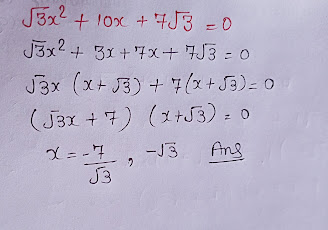 √3x² + 10x + 7√3 = 0
√3x² + 3x + 7x + 7√3 = 0
√3x (x + √3) + 7(x + √3) = 0
(√3x + 7) (x + √3) = 0
x = -7/√3 , -√3 Ans